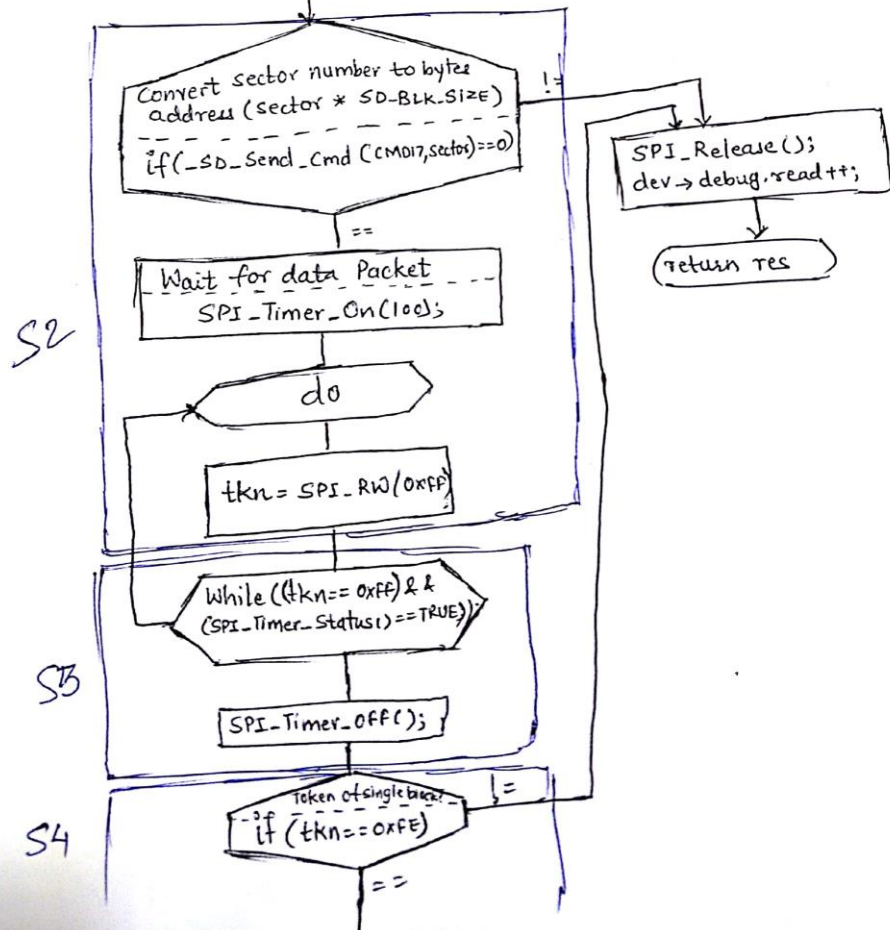 Convert sector number to bytes
address (sector * SD_BLK_SIZE)
if(_SD_Send_Cmd (CMD17, sector)==0)
!=
SPI_Release();
dev→debug.read++;
return res
==
Wait for data Packet
SPI_Timer_On(100);
S2
do
tkn = SPI_RW(0xff)
While((tkn== 0xff)&&
(SPI_Timer_Status()==TRUE));
S3
SPI_Timer_Off();
Token of single block?
!=
if (tkn==0xFE)
S4
==